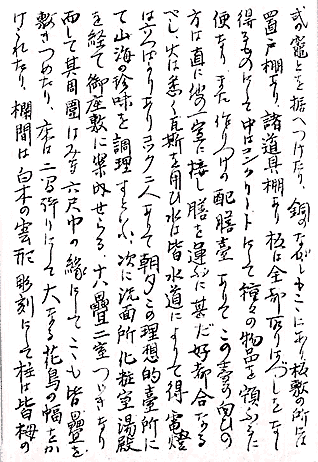 式竈とを据へつけたり、銅のながしもこゝにあり板敷の所には
置戸棚あり、諸道具棚あり板は全部取りはづしをなし
得るものにて中はコンクリートにて種々の物品を貯ふるに
便なり、また作りつけの配膳臺ありてこの臺の向ひの
方は直に他の室に接し膳を運ぶに甚だ好都合なる
べし、火は悉く瓦斯を用ひ水は皆水道によりて得、電燈
は六つばかりありコック二人ありて朝夕この理想的臺所に
て山海の珍味を調理すとぞ、次に洗面所化粧室湯殿
を経て御座敷に案内せらる、十八疊二室つゞきなり
而して其周圍はみな六尺巾の縁にてこゝも皆疊を
敷きつめたり、床は二間行りにて大なる花鳥の幅をか
けられたり、欄間は白木の雲形彫刻にして柱は皆栂の